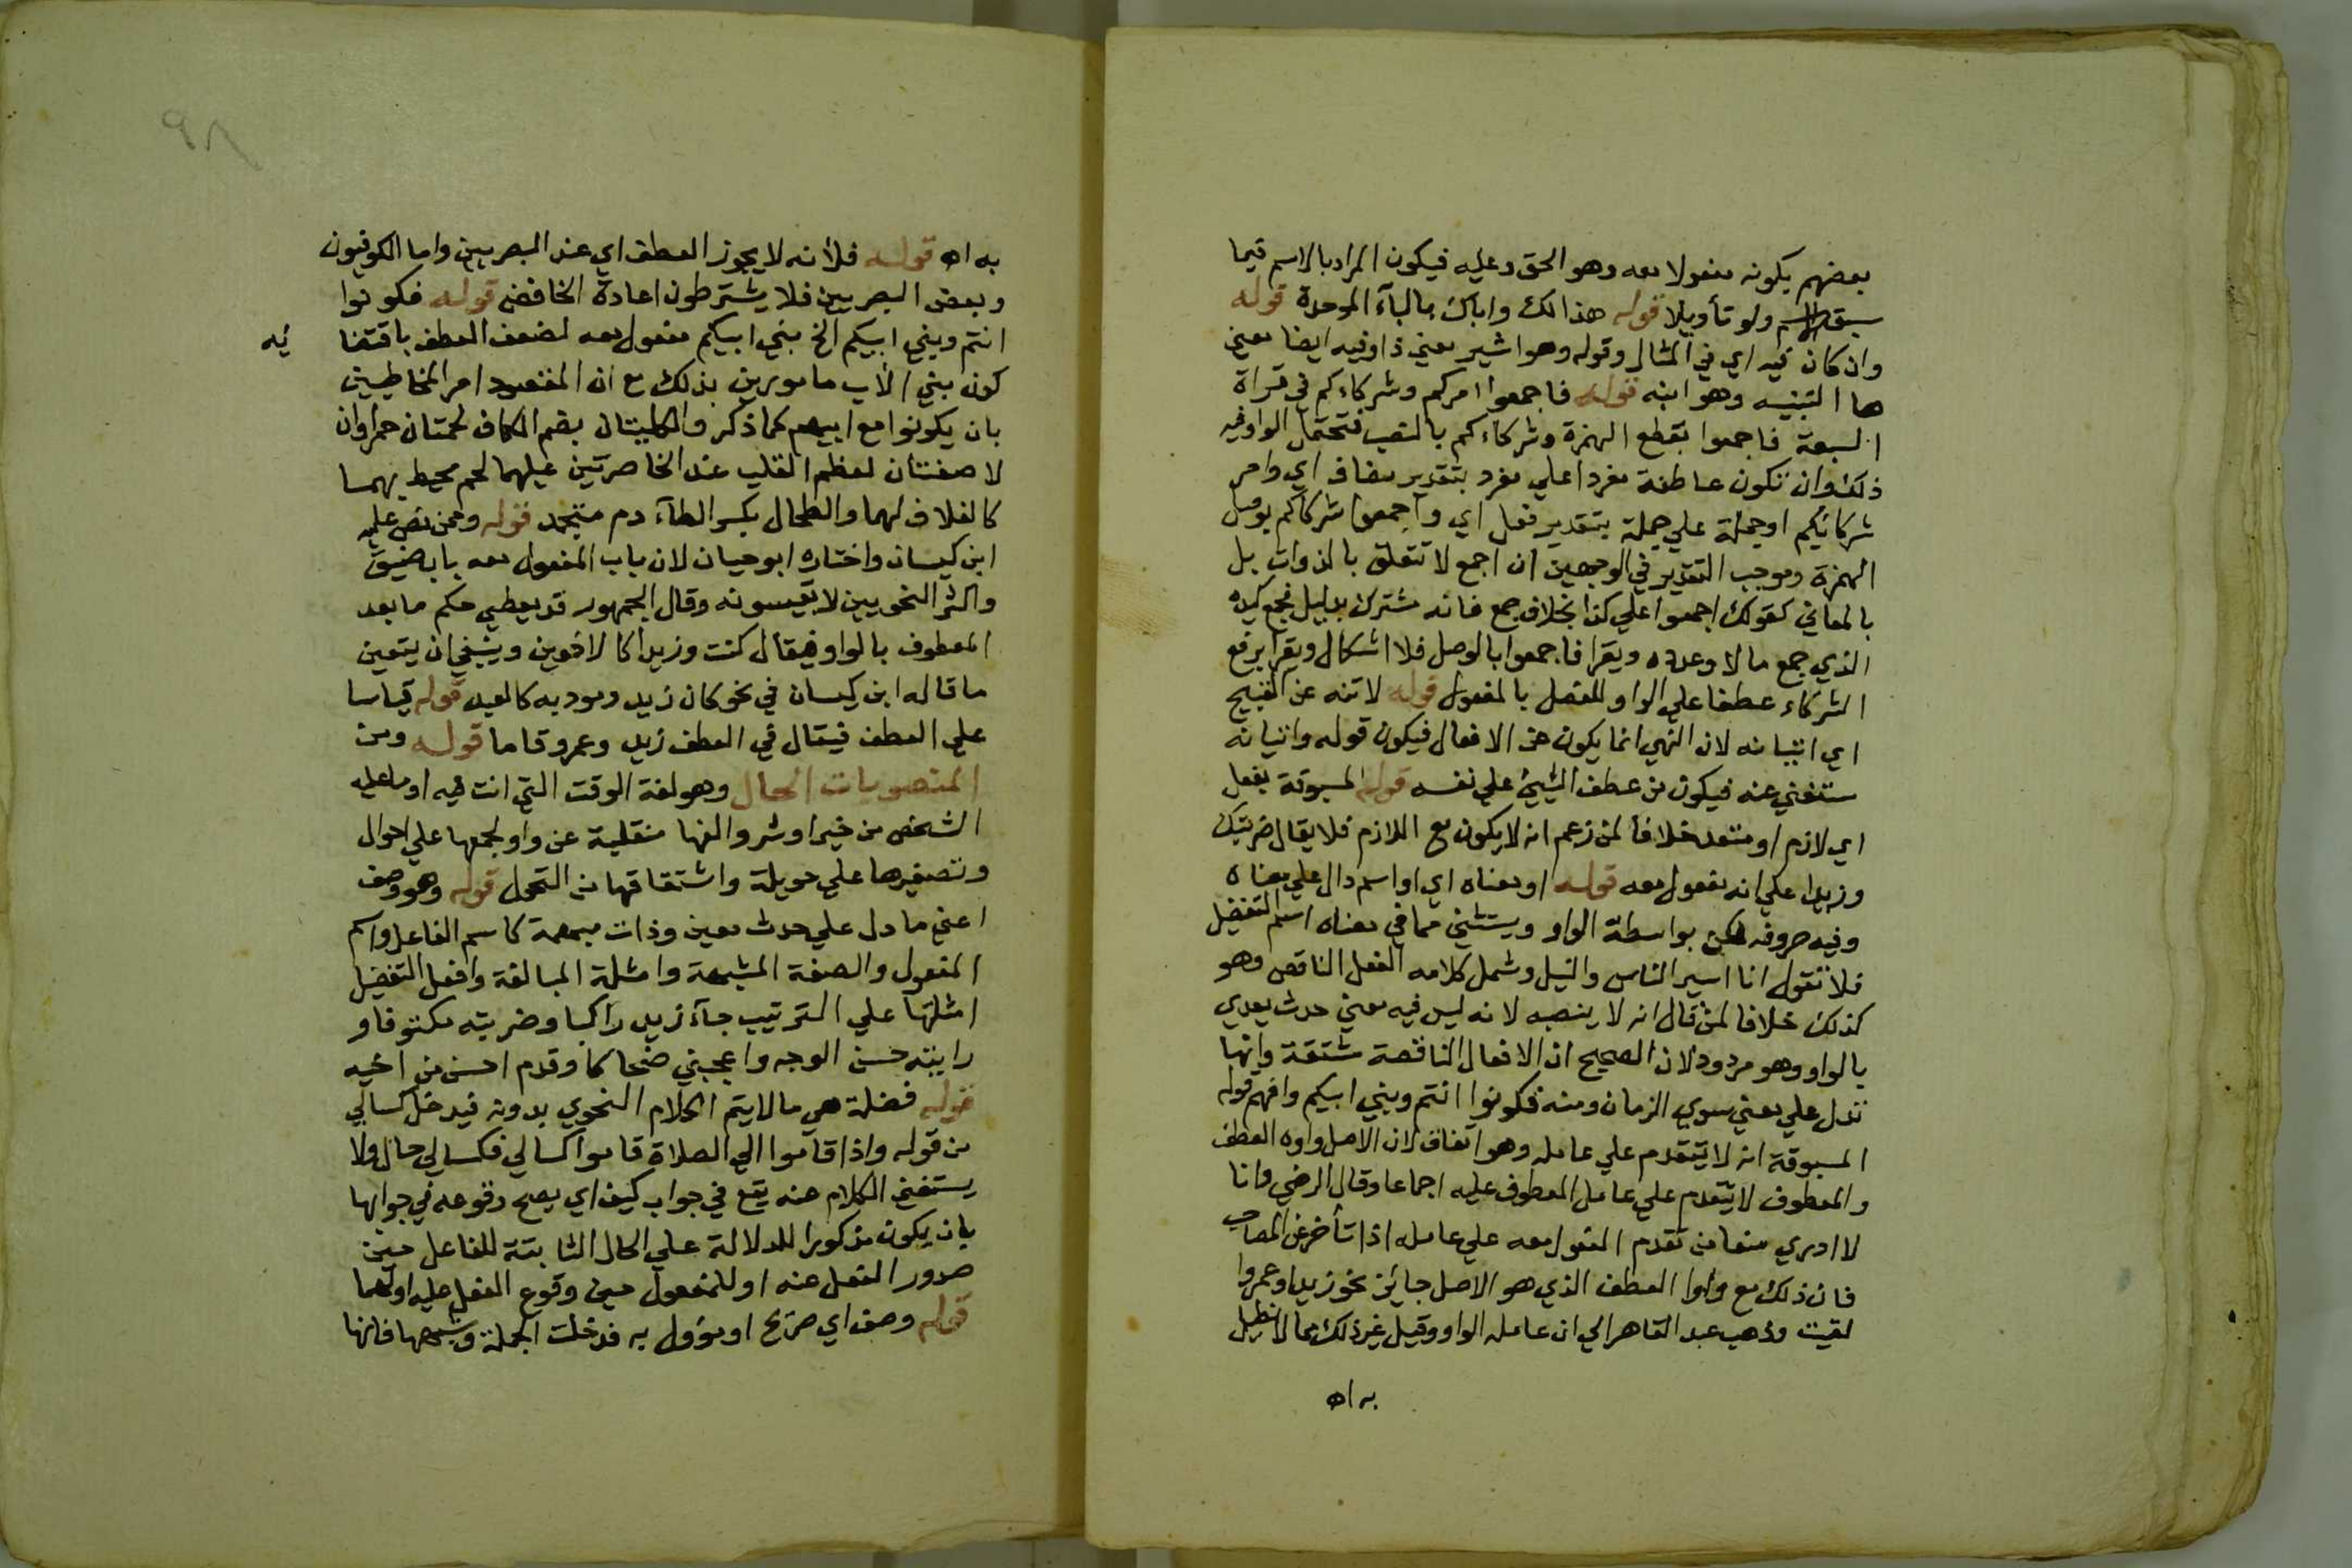 بعضهم بكونه مفعولا معه وهو الحق وعليه فيكون المراد بالاسم فيما
سبق الاسم ولو تأويلا قوله هذا لك واباك بالبآء الموحدة قوله
وان كان فيه اي في المثال وقوله وهو اشير معني ذا وفيه ايضا معني
ها التنبيه وهو انبه قوله فاجمعوا امركم وشركاءكم في قراة
السبعة فاجمعوا بقطع الهمزة وشركاءكم بالنصب فتحتمل الواو فيه
ذلك وان تكون عاطفة مفردا علي مفرد بتقدير مضاف اي وامر
شركائكم او جملة علي جملة بتقدير فعل اي واجمعوا شركاكم بوصل
الهمزة وموجب التقدير في الوجهين ان اجمع لا تتعلق بالذوات بل
بالمعاني كقولك اجمعوا علي كذا بخلاف جمع فانه مشترك بدليل فجمع كيده
الذي جمع مالا وعدده ويقرا فاجمعوا بالوصل فلا اشكال ويقرا برفع
الشركاء عطفا علي الواو للفصل بالمفعول قوله لا تنه عن القبيح
اي اتيانه لان النهي انما يكون عن الافعال فيكون قوله واتيانه
ستغني عنه فيكون من عطف الشيئ علي نفسه قوله المسبوقة بفعل
اي لازم او متعد خلافا لمن زعم انه لا يكون مع اللازم فلا يقال ضربتك
وزيدا علي انه مفعول معه قوله او معناه اي او اسم دال علي معناه
وفيه حروفه لكن بواسطة الواو ويستثني مما في معناه اسم التفضيل
فلا تقول انا اسير الناس والنيل وشمل كلامه الفعل الناقص وهو
كذلك خلافا لمن قال انه لا ينصبه لانه ليس فيه معني حدث يعدي
بالواو وهو مردود لان الصحيح ان الافعال الناقصة مشتقة وانها
تدل علي معني سوي الزمان ومنه فكونوا انتم وبني ابيكم وافهم قوله
المسبوقة انه لا يتقدم علي عامله وهو اتفاق لان الاصل واوه العطف
والمعطوف لا يتقدم علي عامل المعطوف عليه اجماعا وقال الرضي وانا
لا ادري منعا من تقدم المفعول معه علي عامله اذا تأخر عن المصاحب
فان ذلك مع واو العطف الذي هو الاصل جائز نحو زيدا وعمروا
لقيت وذهب عبد القاهر الي ان عامله الواو وقيل غير ذلك مما لا نطيل
به اه
٩٨
به اه قوله فلأنه لا يجوز العطف اي عند البصريين واما الكوفيون
وبعض البصريين فلا يشترطون اعادة الخافض قوله فكونوا
انتم وبني ابيكم الخ بني ابيكم مفعول معه لضعف العطف باقتضا
ئه
كون بني الأب مامورين بذلك مع ان المقصود امر المخاطبين
بان يكونوا مع ابيهم كما ذكر والكليتان بضم الكاف لحمتان حمراوان
لاصقتان لعظم القلب عند الخاصرتين عليهما لحم محيط بهما
كالغلاف لهما والطحال بكسر الطآء دم متجمد قوله وممن نص عليه
ابن كيسان واختاره ابو حيان لان باب المفعول معه باب ضيق
واكثر النحويين لا يقيسونه وقال الجمهور قد يعطي حكم ما بعد
المعطوف بالواو فيقال كنت وزيدا كالاخوين وينبغي ان يتعين
ما قاله ابن كيسان في نحو كان زيد ومودبه كالعبد قوله قياسا
علي العطف فيقال في العطف زيد وعمرو قاما قوله ومن
المنصوبات الحال وهو لغة الوقت التي انت فيه او ما عليه
الشخص من خير او شر والفها منقلبة عن واو لجمعها علي احوال
وتصغيرها علي حويلة واشتقاقها من التحول قوله وهو وصف
اعني ما دل علي حدث معين وذات مبهمة كاسم الفاعل واسم
المفعول والصفة المشبهة وامثلة المبالغة وافعل التفضيل
امثلتها علي الترتيب جآء زيد راكبا وضربته مكتوفا و
رايته حسن الوجه واعجبني ضحاكا وقدم احسن من اخيه
قوله فضلة هي ما لا يتم الكلام النحوي بدونه فيدخل كسالي
من قوله واذا قاموا الي الصلاة قاموا كسالي فكسالي حال ولا
يستغني الكلام عنه يقع في جواب كيف اي يصح وقوعه في جوابها
بان يكون مذكورا للدلالة علي الحال الثابتة للفاعل حين
صدور الفعل عنه او للمفعول حين وقوع الفعل عليه او لهما
قوله وصف اي صريح او مؤول به فدخلت الجملة وشبهها فانها